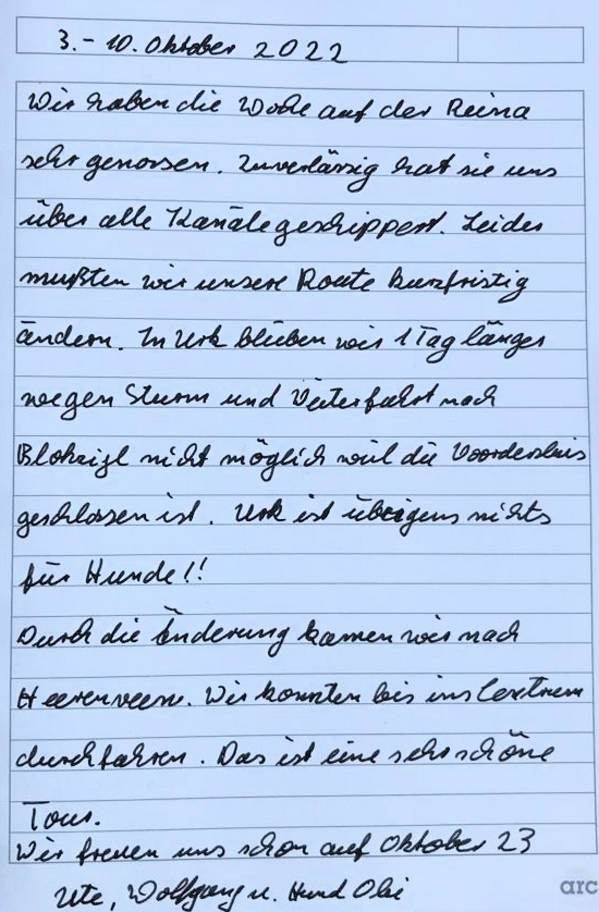 3.- 10. Oktober 2022
Wir haben die Woche auf der Reina
sehr genossen. Zuverlässig hat sie uns
über alle Kanäle geschippert. Leider
mußten wir unsere Route kurzfristig
ändern. In Urk blieben wir 1 Tag länger
wegen Sturm und Weiterfahrt nach
Blokzijl nicht möglich weil die Voordersluis
geschlossen ist. Urk ist übrigens nichts
für Hunde!!
Durch die Änderung kamen wir nach
Heerenveen. Wir konnten bis ins Centrum
durchfahren. Das ist eine sehr schöne
Tour.
Wir freuen uns schon auf Oktober 23
Ute, Wolfgang u. Hund Obi
arc